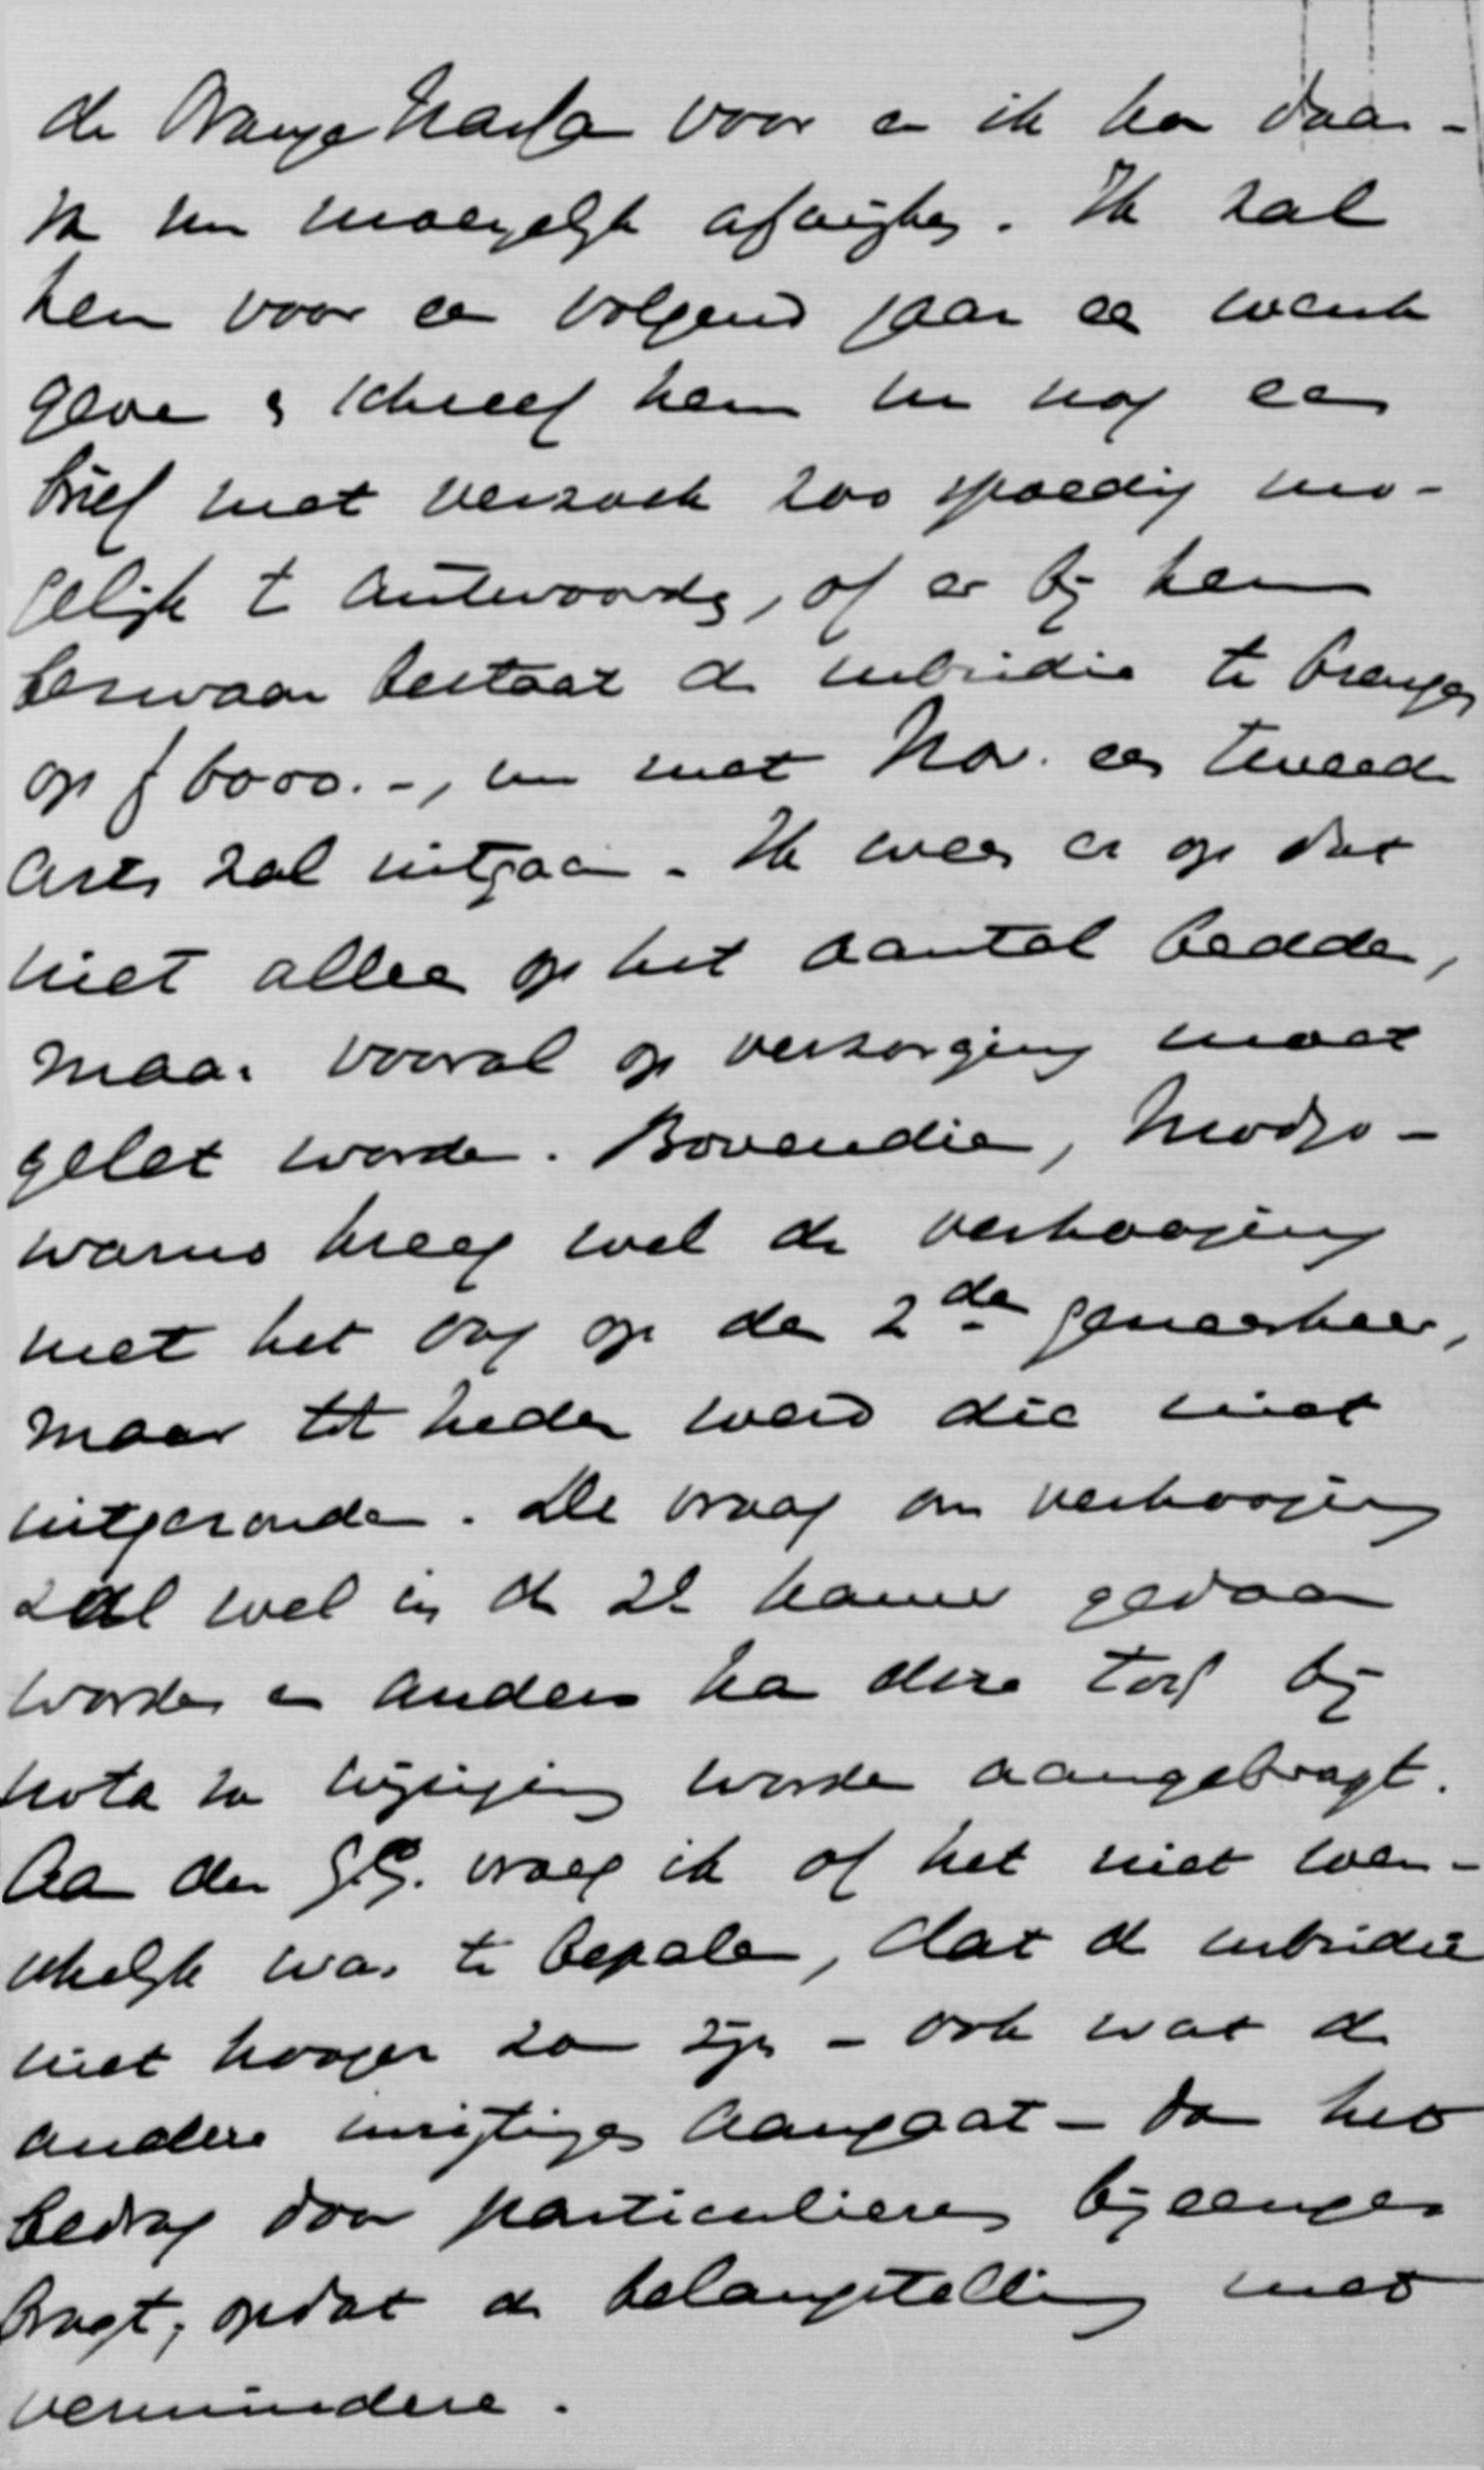 de Oranje Nassau voor en ik kan daar-
in hen moeijelijk afwijken. Ik zal
hen voor een volgend jaar een wenk
geven en schreef hem nu nog een
brief met verzoek zoo spoedig mo-
gelijk te antwoorden, of er bij hen
bezwaar bestaat de subsidie te brengen
op f 6000.-, nu met Nov. een tweede
arts zal uitgaan. Ik wees er op dat
niet alleen op het aantal bedden,
maar vooral op verzorging moet
gelet worden. Bovendien, Modjo-
warno kreeg wel de verhooging
met het oog op den 2den geneesheer,
maar tot heden werd die niet
uitgezonden. De vraag om verhooging
zal wel in de 2e kamer gedaan
worden en anders kan deze toch bij
nota van wijziging worden aangebragt.
Aan den G.G. vroeg ik of het niet wen-
schelijk was te bepalen, dat de subsidie
niet hooger zou zijn - ook wat de
andere inrigtingen aangaat - dan het
bedrag door particulieren bijeenge-
bragt, opdat de belangstelling niet
verminderen.